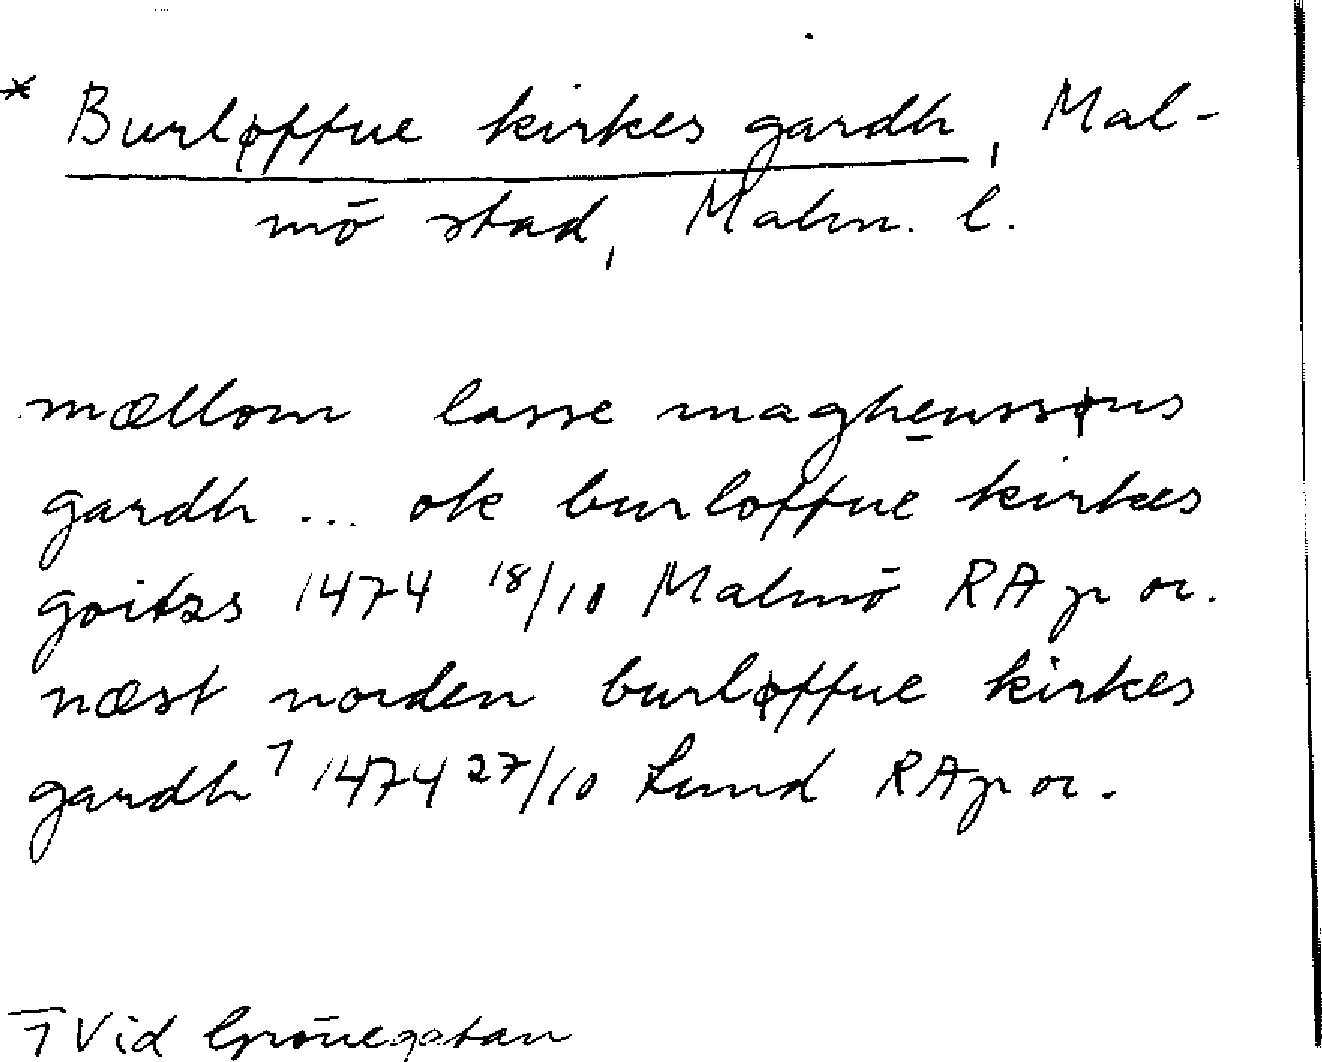 * Burløffue kirkes gardh, Mal-
mö stad, Malm. l.
mællom lasse maghenssøns
gardh ... ok burloffue kirkes
goitzs 1474 18/10 Malmö RA p or.
næst norden burløffue kirkes
gardh 1 1474 27/10 Lund RA p or.
1 Vid Grönegatan